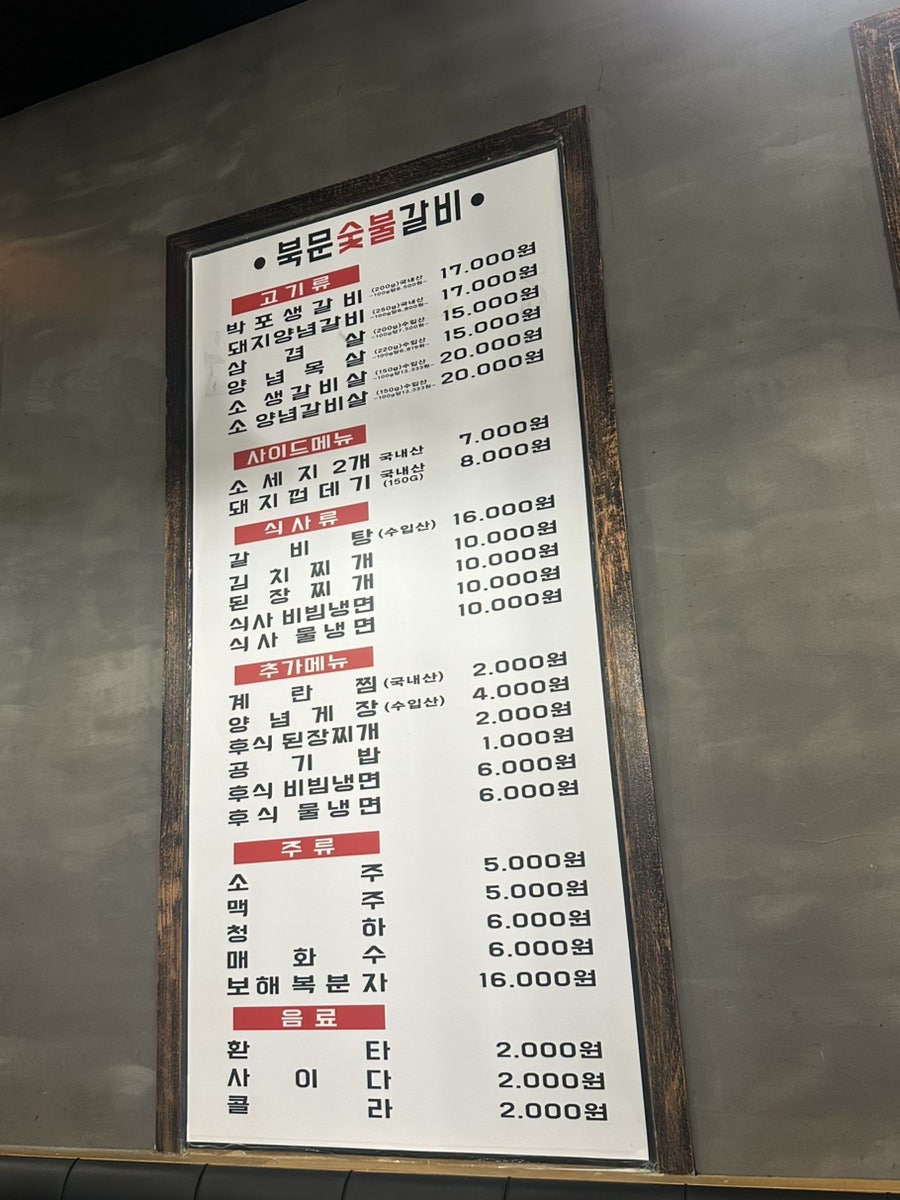 • 북문숯불갈비 •
고기류
박포생갈비 (200g)국내산 -100g당8,500원- 17.000원
돼지양념갈비 (250g)국내산 -100g당6,800원- 17.000원
삼겹살 (200g)수입산 -100g당7,500원- 15.000원
양념목살 (220g)수입산 -100g당6,819원- 15.000원
소생갈비살 (150g)수입산 -100g당13,333원- 20.000원
소양념갈비살 (150g)수입산 -100g당13,333원- 20.000원
사이드메뉴
소세지2개 국내산 7.000원
돼지껍데기 국내산 (150G) 8.000원
식사류
갈비탕 (수입산) 16.000원
김치찌개 10.000원
된장찌개 10.000원
식사 비빔냉면 10.000원
식사 물냉면 10.000원
추가메뉴
계란찜 (국내산) 2.000원
양념게장 (수입산) 4.000원
후식 된장찌개 2.000원
공기밥 1.000원
후식 비빔냉면 6.000원
후식 물냉면 6.000원
주류
소주 5.000원
맥주 5.000원
청하 6.000원
매화수 6.000원
보해복분자 16.000원
음료
환타 2.000원
사이다 2.000원
콜라 2.000원